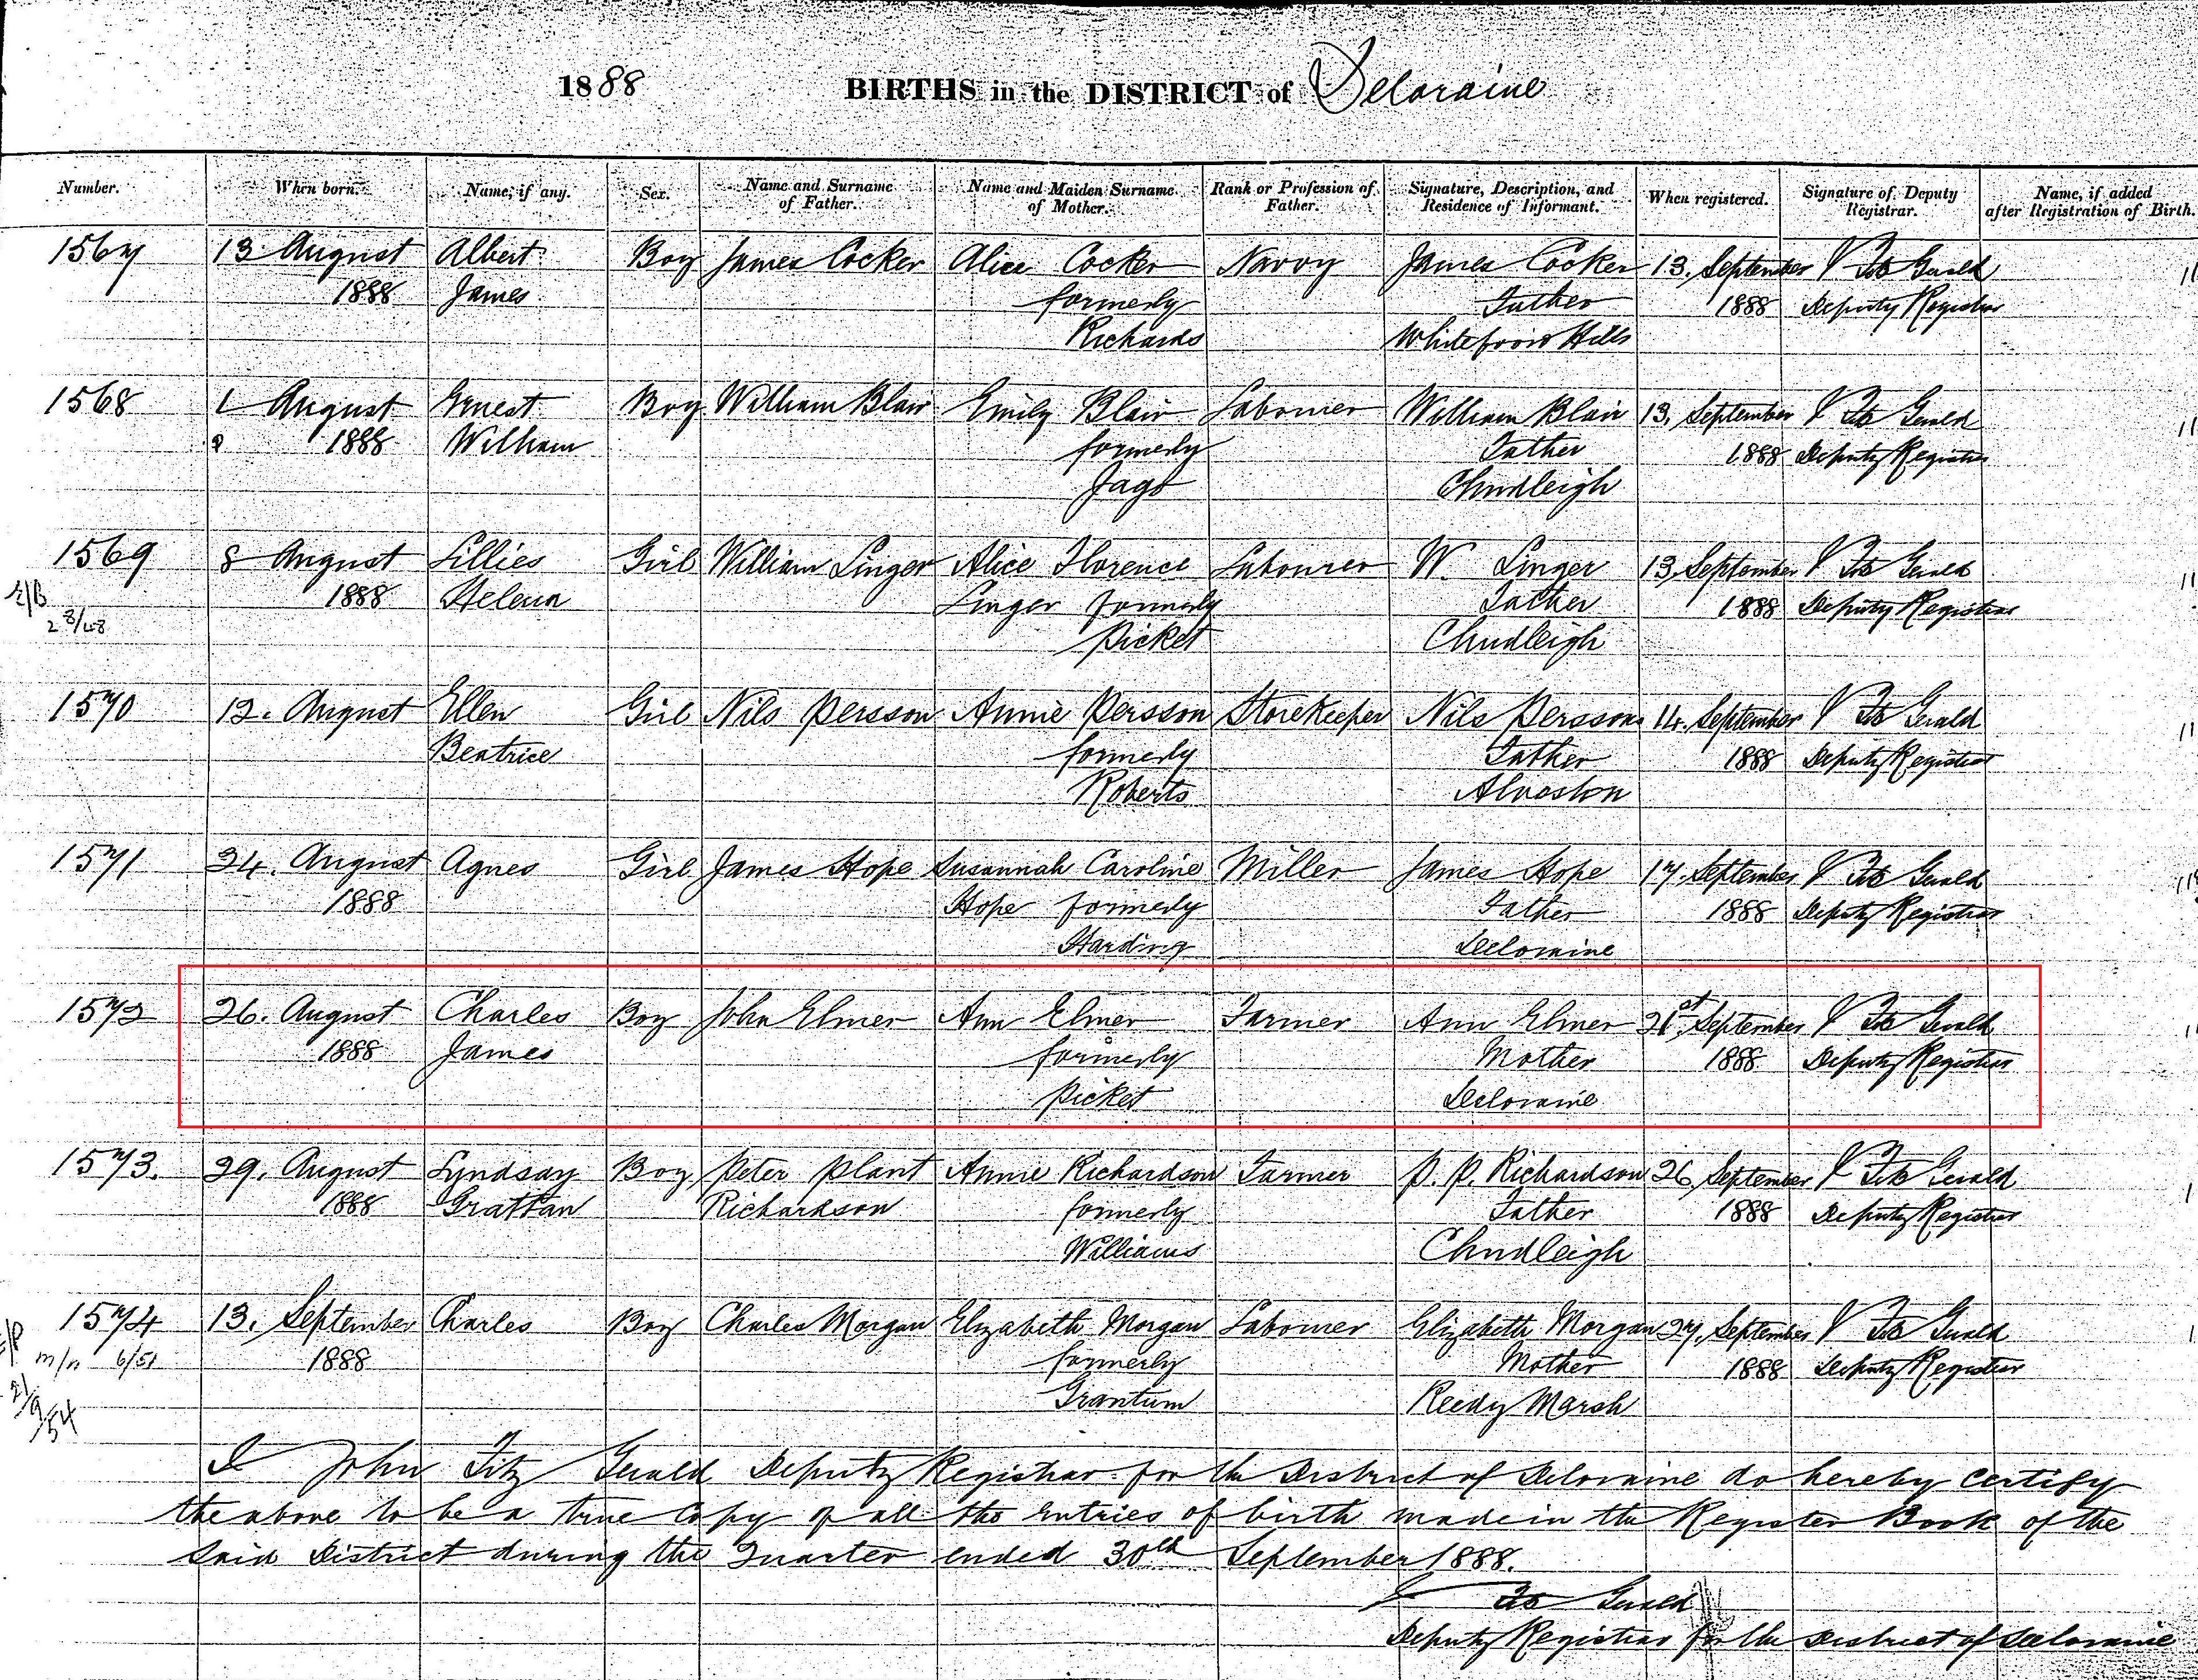 1888 BIRTHS in the DISTRICT of Deloraine
Number. When born. Name, if any. Sex. Name and Surname of Father. Name and Maiden Surname of Mother. Rank or Profession of Father. Signature, Description, and Residence of Informant. When registered. Signature of Deputy Registrar. Name, if added after Registration of Birth.
1567 13. August Albert Boy James Cocker Alice Cocker Navvy James Cocker 13. September J Fitz Gerald
1888 James formerly Father 1888 Deputy Registrar
Richards Whitefoord Hills
1568 1 August Ernest Boy William Blair Emily Blair Labourer William Blair 13. September J Fitz Gerald
1888 William formerly Father 1888 Deputy Registrar
Jago Chudleigh
1569 8 August Lillies Girl William Linger Alice Florence Labourer W. Linger 13. September J Fitz Gerald
1888 Helena Linger formerly Father 1888 Deputy Registrar
Picket Chudleigh
1570 12. August Ellen Girl Nils Persson Annie Persson Storekeeper Nils Persson 14. September J Fitz Gerald
Beatrice formerly Father 1888 Deputy Registrar
Roberts Alveston
1571 24. August Agnes Girl James Hope Susannah Caroline Miller James Hope 17. September J Fitz Gerald
1888 Hope formerly Father 1888 Deputy Registrar
Harding Deloraine
1572 26. August Charles Boy John Elmer Ann Elmer Farmer Ann Elmer 21st September J Fitz Gerald
1888 James formerly Mother 1888 Deputy Registrar
Picket Deloraine
1573. 29. August Lyndsay Boy Peter Plant Annie Richardson Farmer P. P. Richardson 26. September J Fitz Gerald
1888 Grattan Richardson formerly Father 1888 Deputy Registrar
Williams Chudleigh
1574 13. September Charles Boy Charles Morgan Elizabeth Morgan Labourer Elizabeth Morgan 27. September J Fitz Gerald
m/n 6/51 1888 formerly Mother 1888 Deputy Registrar
21/9/54 Grantum Reedy Marsh
I John Fitz Gerald Deputy Registrar for the District of Deloraine do hereby certify
the above to be a true copy of all the entries of birth made in the Register Book of the
said District during the Quarter ended 30th September 1888.
J Fitz Gerald
Deputy Registrar for the District of Deloraine